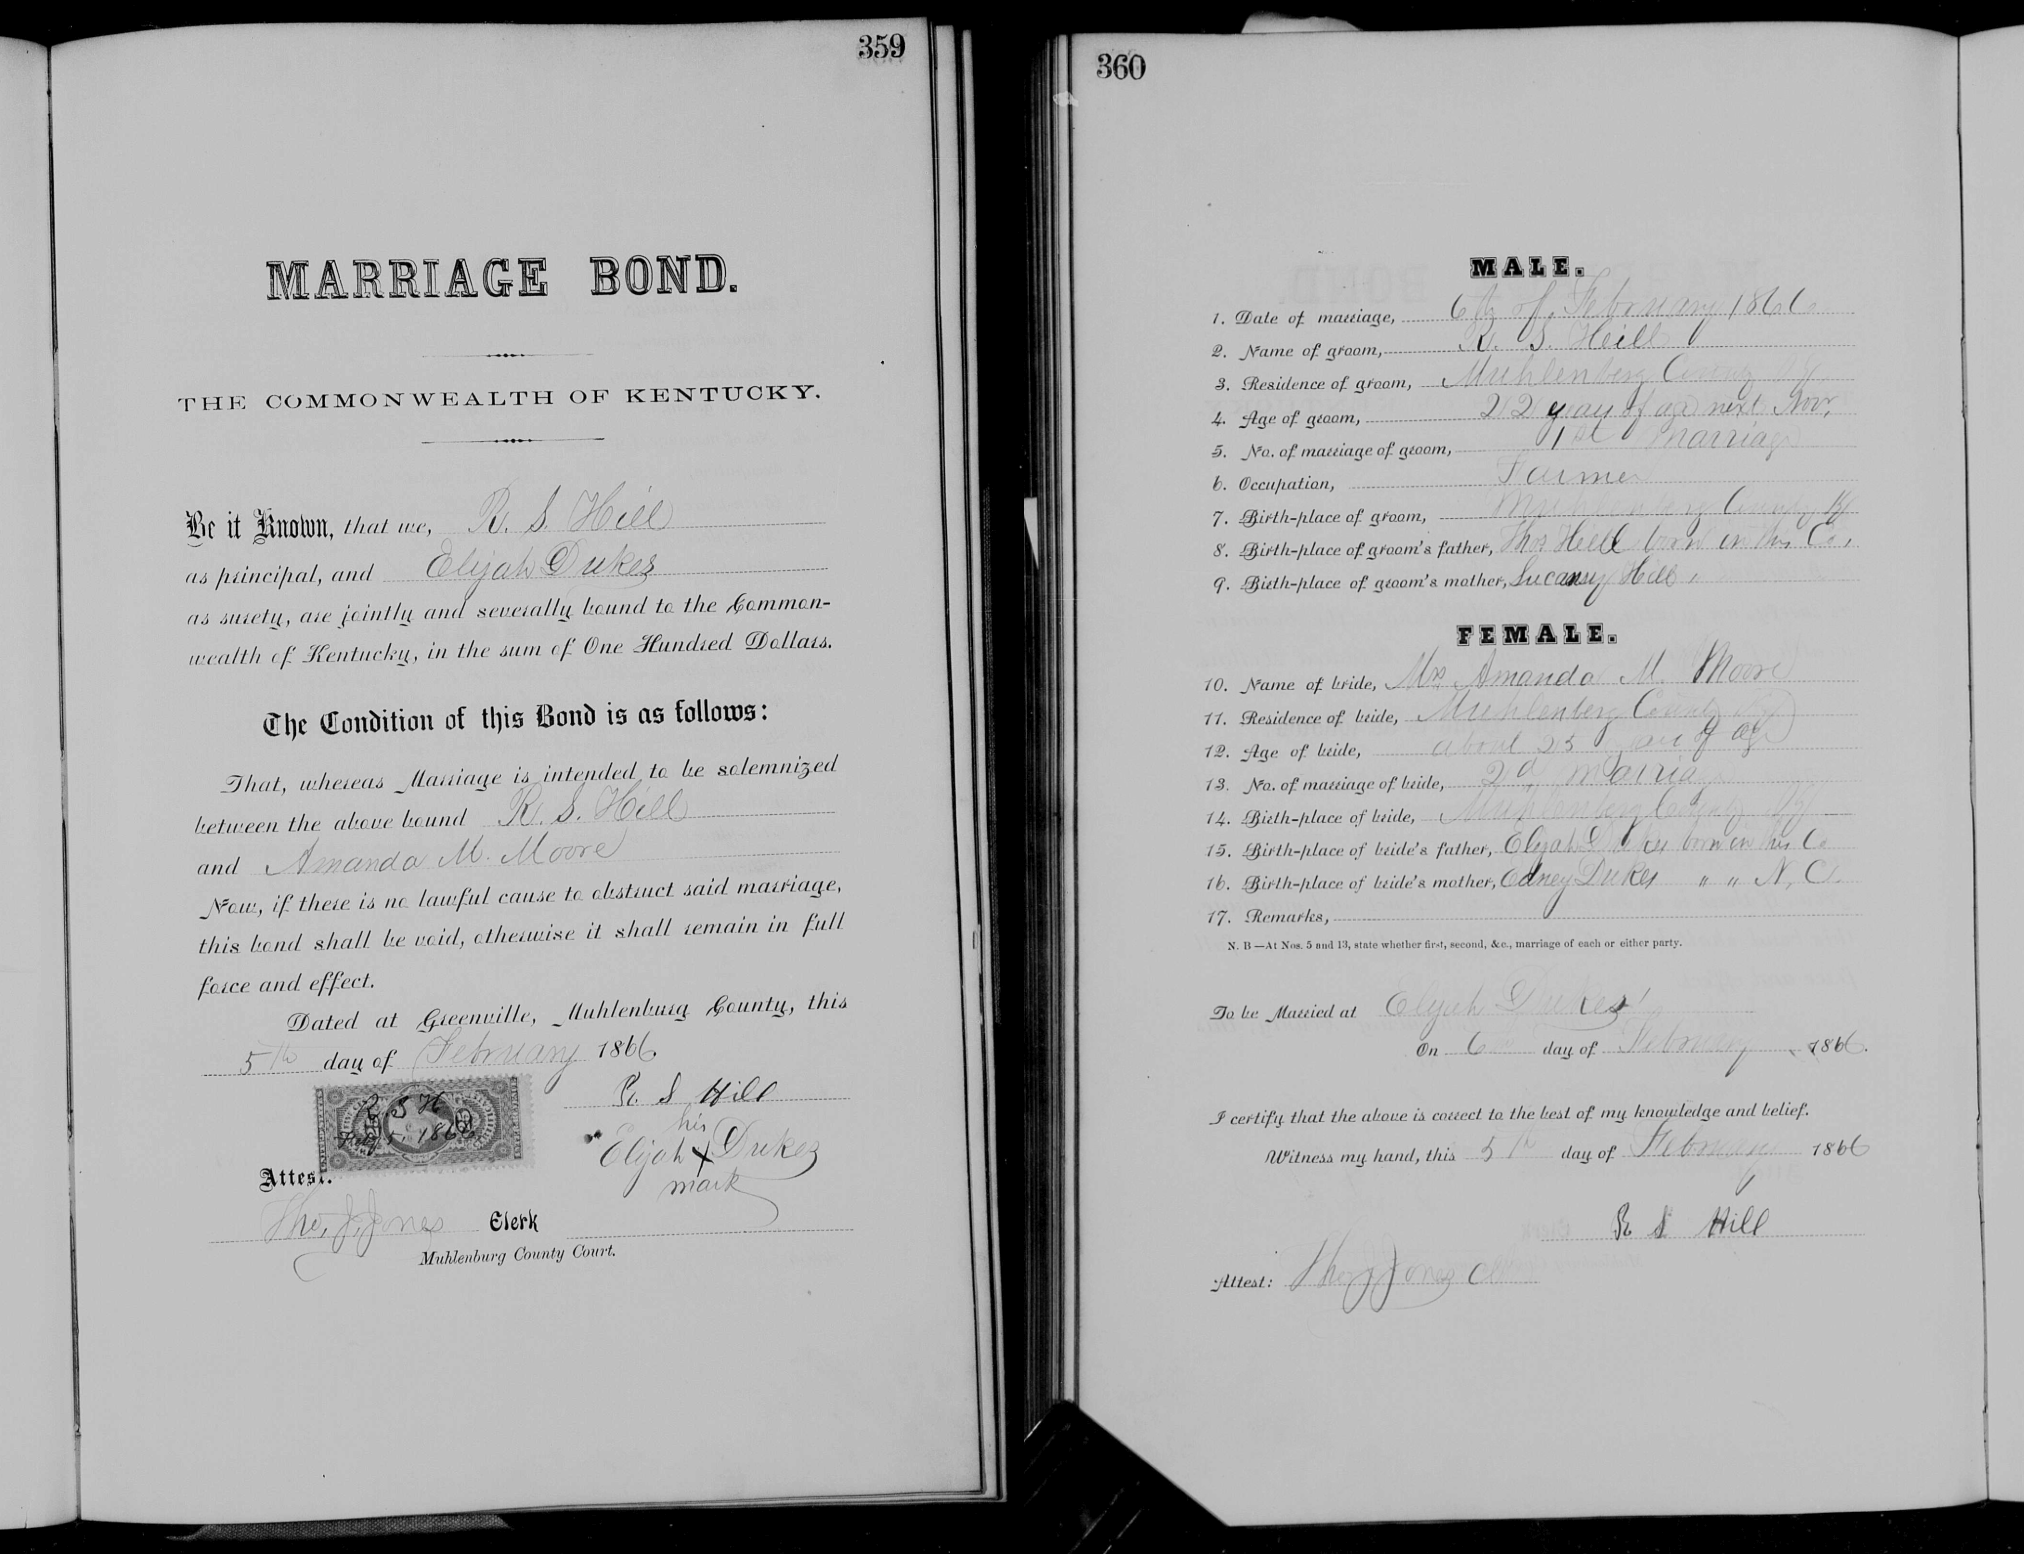 359
MARRIAGE BOND.
THE COMMONWEALTH OF KENTUCKY.
Be it Known, that we, R. S. Hill
as principal, and Elijah Dukes
as surety, are jointly and severally bound to the Common-
wealth of Kentucky, in the sum of One Hundred Dollars.
The Condition of this Bond is as follows:
That, whereas Marriage is intended to be solemnized
between the above bound R. S. Hill
and Amanda M. Moore
Now, if there is no lawful cause to obstruct said marriage,
this bond shall be void, otherwise it shall remain in full
force and effect.
Dated at Greenville, Muhlenburg County, this
5th day of February 1866
R. S. H
Feby 5, 1866
R S Hill
his
Elijah X Dukes
mark
Attest.
Tho. J. Jones Clerk
Muhlenburg County Court.
360
MALE.
1. Date of marriage, 6th of February 1866
2. Name of groom, R. S. Hill
3. Residence of groom, Muhlenberg County Ky
4. Age of groom, 22 year of age next Nov,
5. No. of marriage of groom, 1st Marriage
6. Occupation, Farmer
7. Birth-place of groom, Muhlenberg County Ky
8. Birth-place of groom's father, Thos Hill born in this Co,
9. Birth-place of groom's mother, Hill
FEMALE.
10. Name of bride, Mrs. Amanda M. Moore
11. Residence of bride, Muhlenberg County Ky
12. Age of bride, about 23 year of age
13. No. of marriage of bride, 2d marriage
14. Birth-place of bride, Muhlenberg County Ky
15. Birth-place of bride's father, Elijah Dukes born in this Co
16. Birth-place of bride's mother, Edney Dukes " " N. C.
17. Remarks,
N. B—At Nos. 5 and 13, state whether first, second, &c., marriage of each or either party.
To be Married at Elijah Dukes'
On 6th day of February 1866.
I certify that the above is correct to the best of my knowledge and belief.
Witness my hand, this 5th day of February 1866
R S Hill
Attest: Tho J Jones Clk